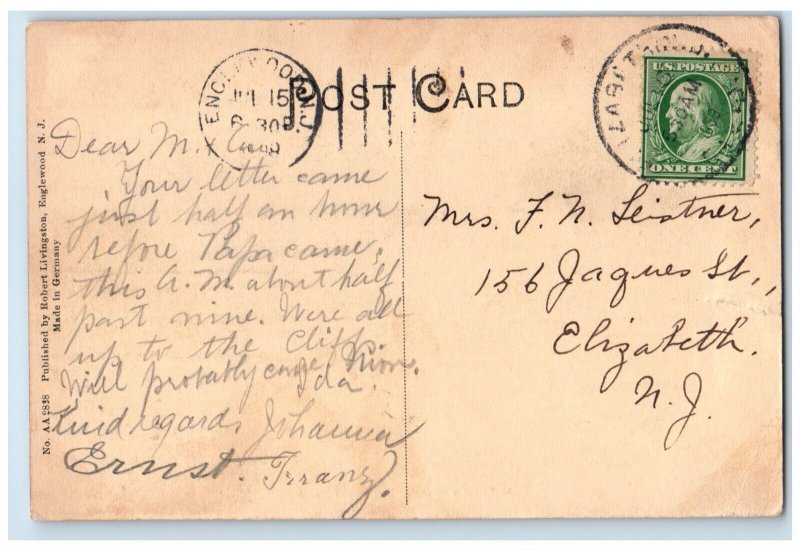 POST CARD
ENGLEWOOD N.J.
JUL 15
30P
U.S. POSTAGE
ONE CENT
30AM
Dear M.
Your letter came
just half an hour
before Papa came,
this A.M. about half
past nine. Were all
up to the Cliff.
Will probably come Mon.
Ida.
Kind regards, Johanna
Ernst. Franz.
Mrs. F. N. Leistner,
156 Jaques St.,
Elizabeth.
N.J.
No. AA9838 Published by Robert Livingston, Englewood N. J.
Made in Germany